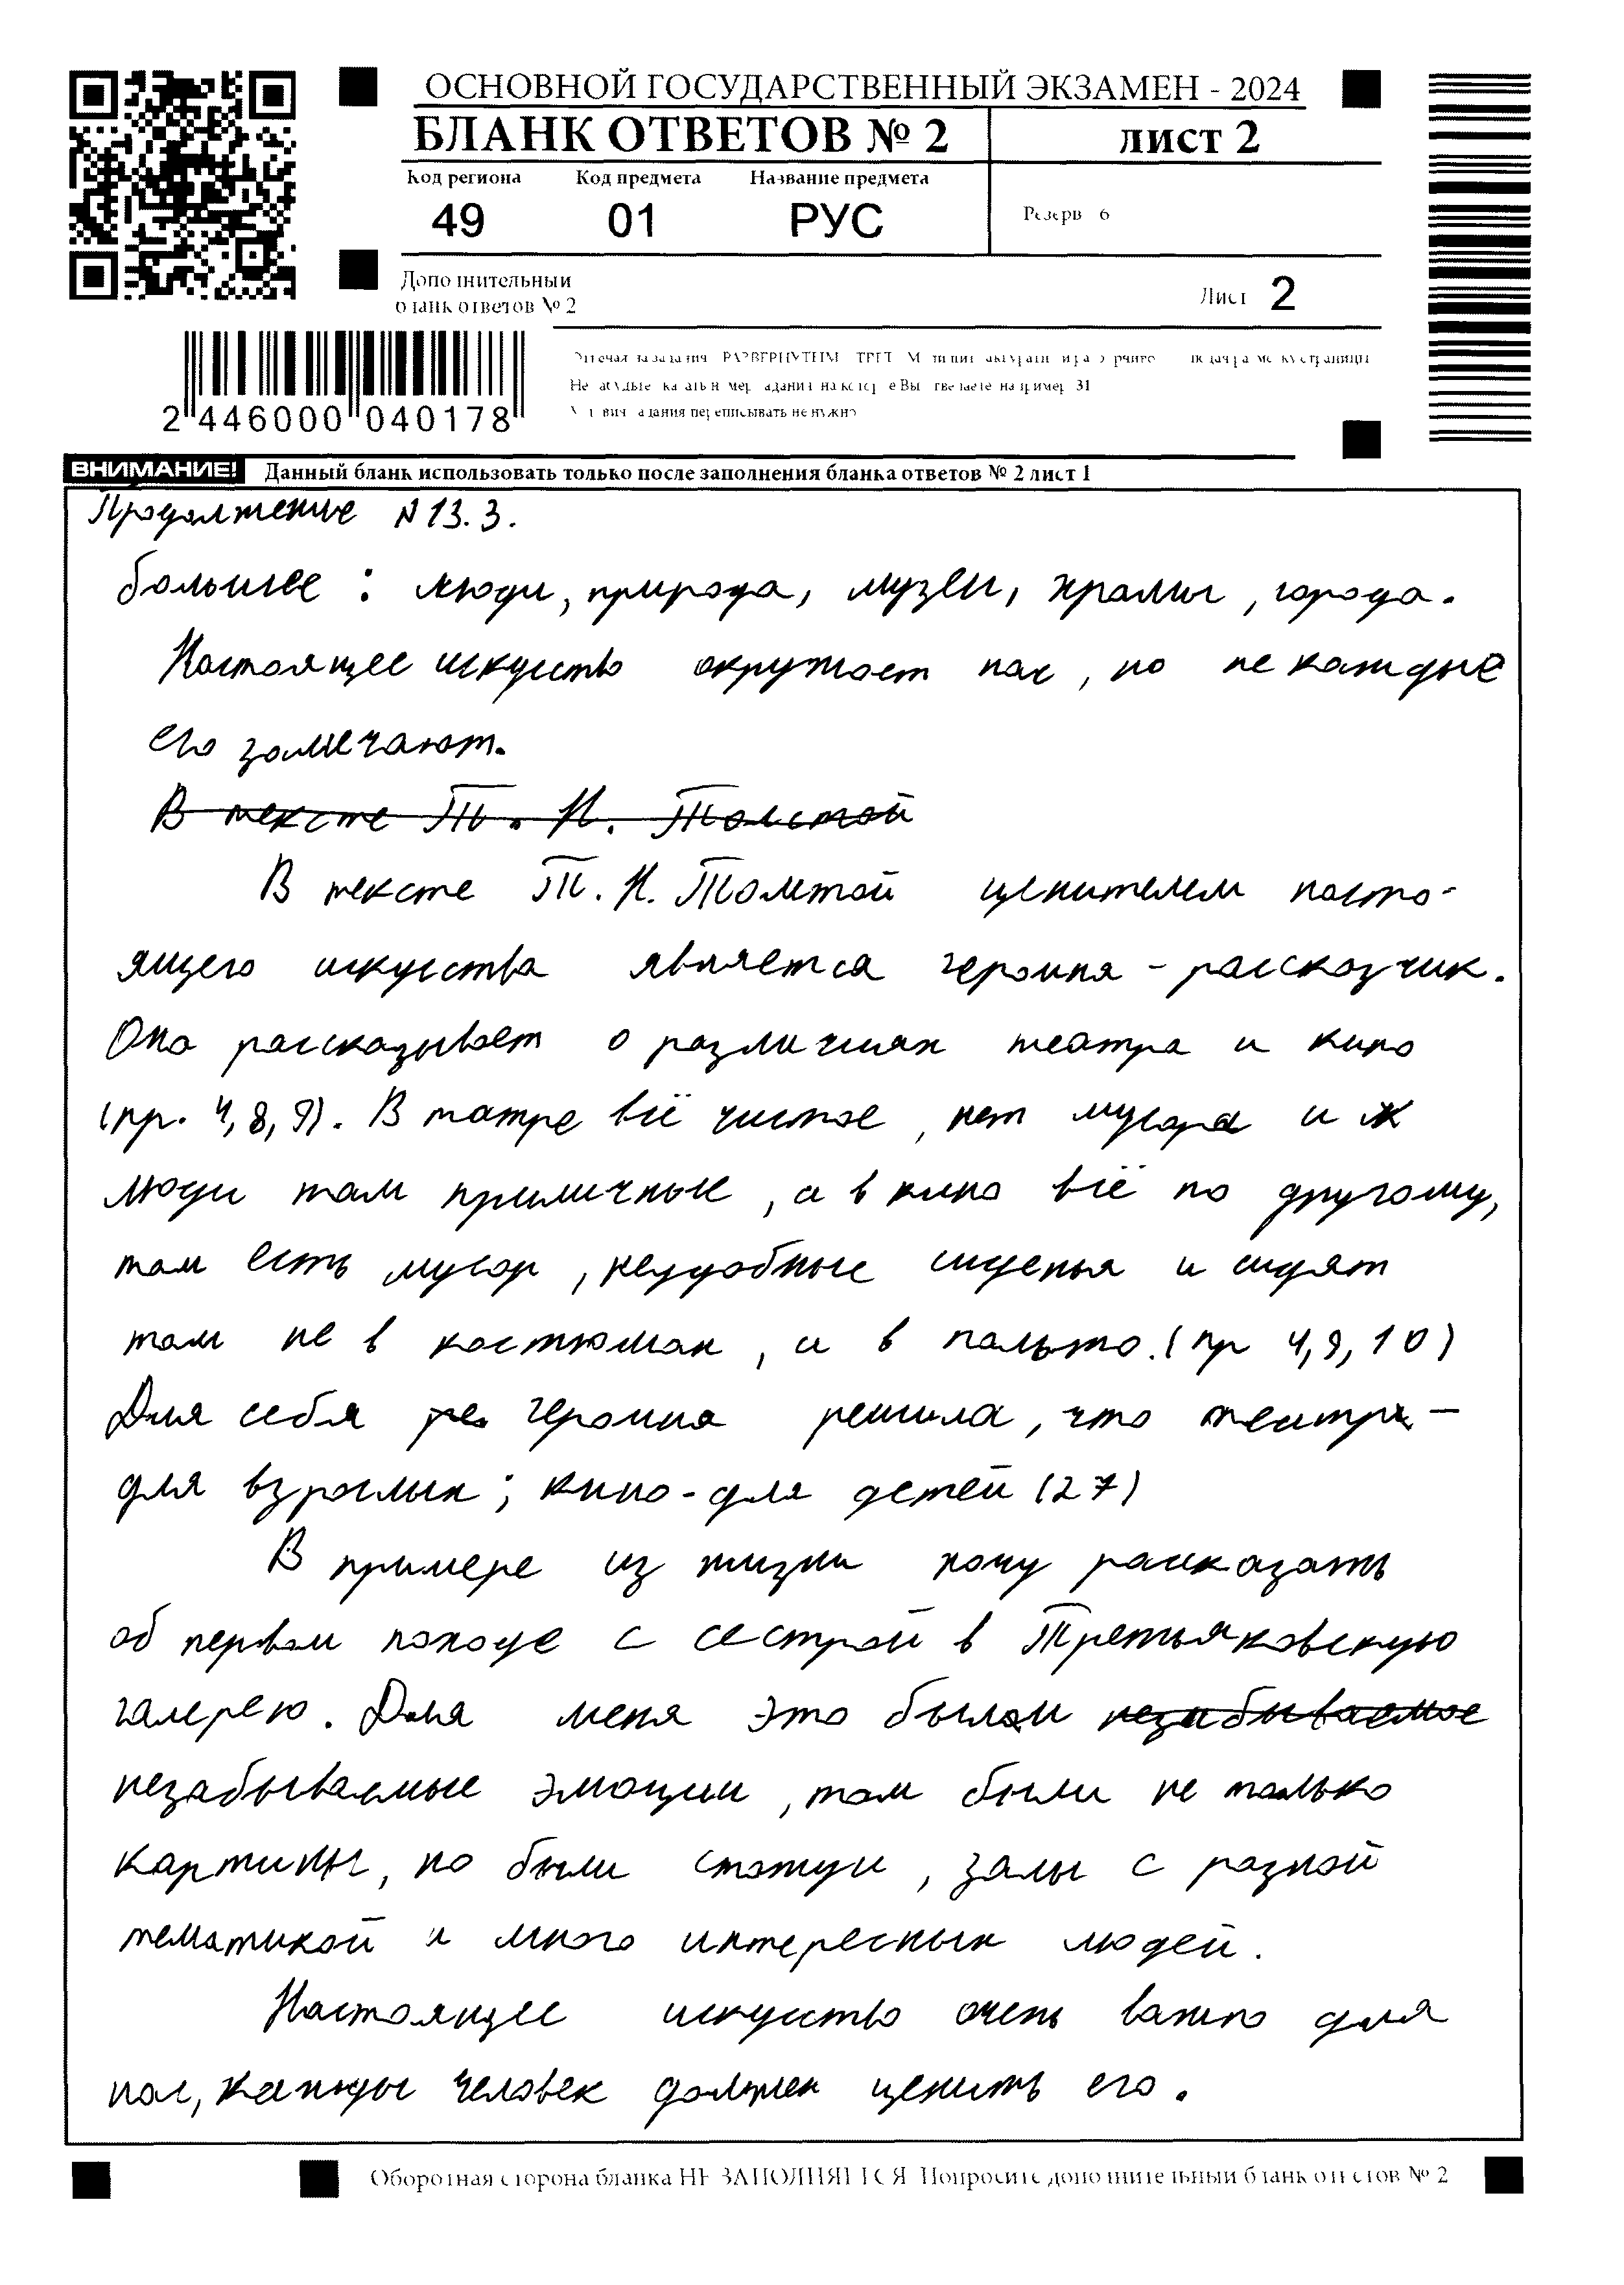 ОСНОВНОЙ ГОСУДАРСТВЕННЫЙ ЭКЗАМЕН - 2024
БЛАНК ОТВЕТОВ № 2
ЛИСТ 2
Код региона Код предмета Название предмета
49 01 РУС
Резерв 6
Дополнительный
бланк ответов № 2
Лист 2
2 446000 040178
ВНИМАНИЕ! Данный бланк использовать только после заполнения бланка ответов № 2 лист 1
Продолжение N 13.3.
большее : люди, природа, музеи, храмы, города.
Настоящее искуство окружает нас, но не каждые
его замечают.
В тексте Т. Н. Толстой
В тексте Т. Н. Толстой ценителем насто-
ящего искусства является героиня - рассказчик.
Она рассказывает о различиях театра и кино
(пр. 4, 8, 9). В татре всё чистое, нет мусора и ж
люди там приличные, а в кино всё по другому,
там есть мусор, неудобные сиденья и сидят
там не в костюмах, а в пальто. (пр 4, 9, 10)
Для себя ре героиня решила, что театр -
для взрослых; кино - для детей (27)
В примере из жизни хочу рассказать
об первом походе с сестрой в Третьяковскую
галерею. Для меня это были незабываемое
незабываемые эмоции, там были не только
картины, но были статуи, залы с разной
тематикой и много интересных людей.
Настоящее искуство очень важно для
нас, каждый человек должен ценить его.
Оборотная сторона бланка НЕ ЗАПОЛНЯЕТСЯ. Попросите дополнительный бланк ответов № 2